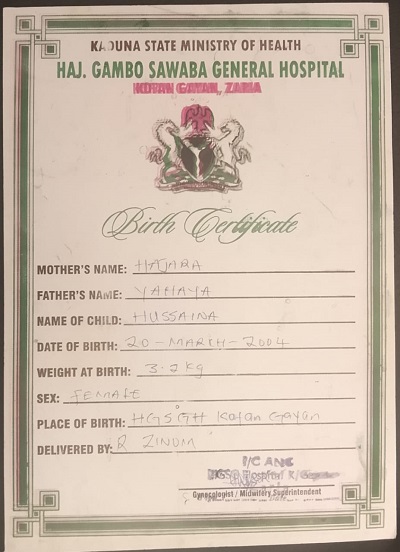 KADUNA STATE MINISTRY OF HEALTH
HAJ. GAMBO SAWABA GENERAL HOSPITAL
KOFAN GAYAN, ZARIA
Birth Certificate
MOTHER'S NAME: HAJARA
FATHER'S NAME: YAHAYA
NAME OF CHILD: HUSSAINA
DATE OF BIRTH: 20-MARCH-2004
WEIGHT AT BIRTH: 3.2kg
SEX: FEMALE
PLACE OF BIRTH: HGSGH Kofan Gayan
DELIVERED BY: R ZINOM
I/C ANC
Hospital K/
Gynecologist / Midwifery Superintendent